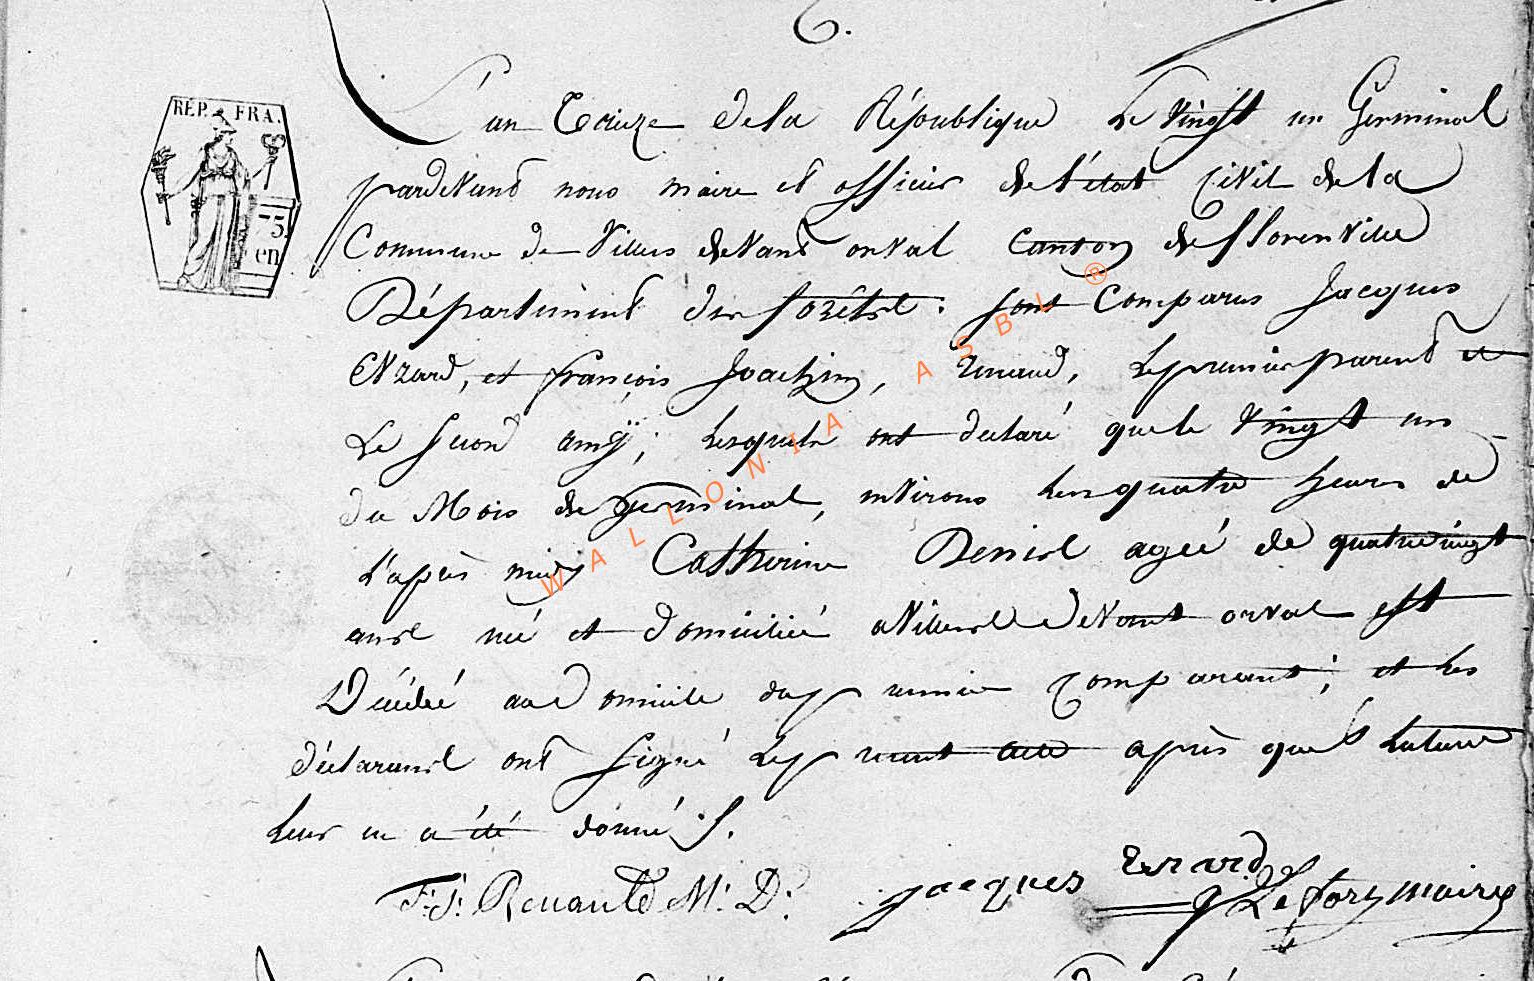 6.
RÉP. FRA.
75
en
L'an treize de la République le vingt un Germinal
pardevant nous maire et officier de l'état civil de la
Commune de Villers devant orval canton de florenville
Département des forêts. sont comparus Jacques
Evrard, et françois Joachim, Renaud, le premier parent et
Le second amÿ; lesquels ont declaré que le vingt un
du Mois de germinal, environs les quatre heures de
l'après midy Catherine agée de quatrevingt
ans né et domiciliée a Villers devant orval est
Décédé au Domicile du premier comparant; et les
déclarans ont signé le present acte après que lecture
leur en a été donné /.
F: J: Renauld M: D: jacques Evrard
mairre
WALLONIA ASBL ®